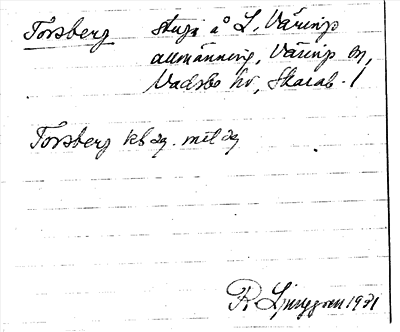 Torsberg stuga å L. Värings
allmänning, Värings sn,
Vadsbo hd, Skarab. l
Torsberg kb 29. mtl 29
R. Ljunggren 1971